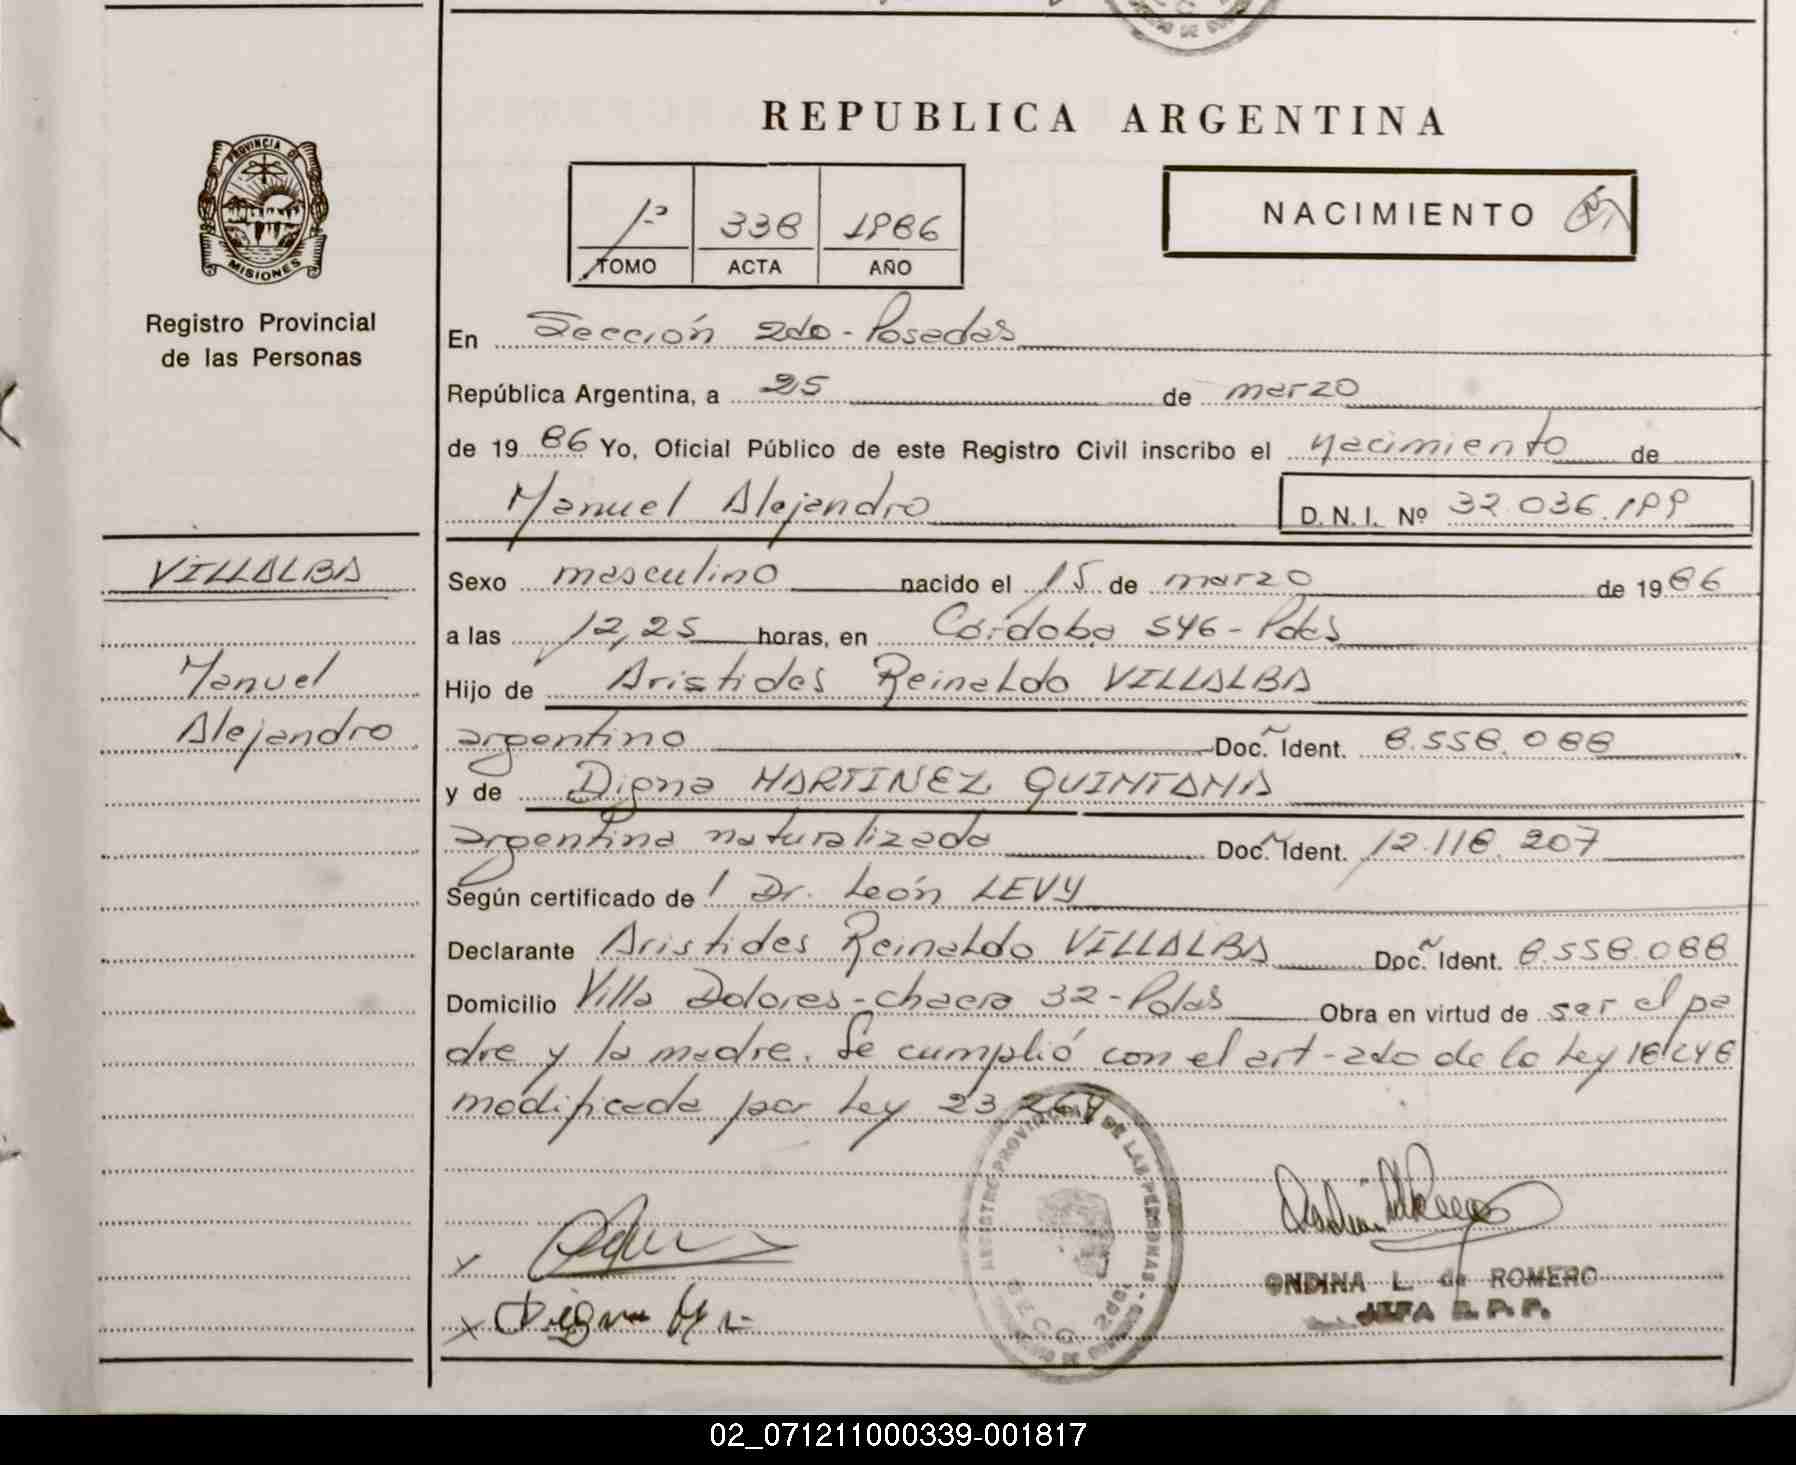 REPUBLICA ARGENTINA
PROVINCIA DE
MISIONES
Registro Provincial
de las Personas
1º 338 1986
TOMO ACTA AÑO
NACIMIENTO
En Sección 2do - Posadas
República Argentina, a 25 de marzo
de 1986 Yo, Oficial Público de este Registro Civil inscribo el nacimiento de
Manuel Alejandro
D. N. I. Nº 32.036.199
VILLALBA
Manuel
Alejandro
Sexo masculino nacido el 15 de marzo de 1986
a las 12,25 horas, en Córdoba 546 - Pdas
Hijo de Aristides Reinaldo VILLALBA
argentino Doc. Ident. 8.558.088
y de Digna MARTINEZ QUINTANA
argentina naturalizada Doc. Ident. 12.118.207
Según certificado de Dr. León LEVY
Declarante Aristides Reinaldo VILLALBA Doc. Ident. 8.558.088
Domicilio Villa Dolores - chacra 32 - Pdas Obra en virtud de ser el pa
dre y la madre. Se cumplió con el art - 2do de la Ley 18248
modificada por Ley 23.264
REGISTRO PROVINCIAL DE LAS PERSONAS
SECC. 2da.
x
x Digna
ONDINA L. de ROMERO
JEFA R. P. P.
02_071211000339-001817